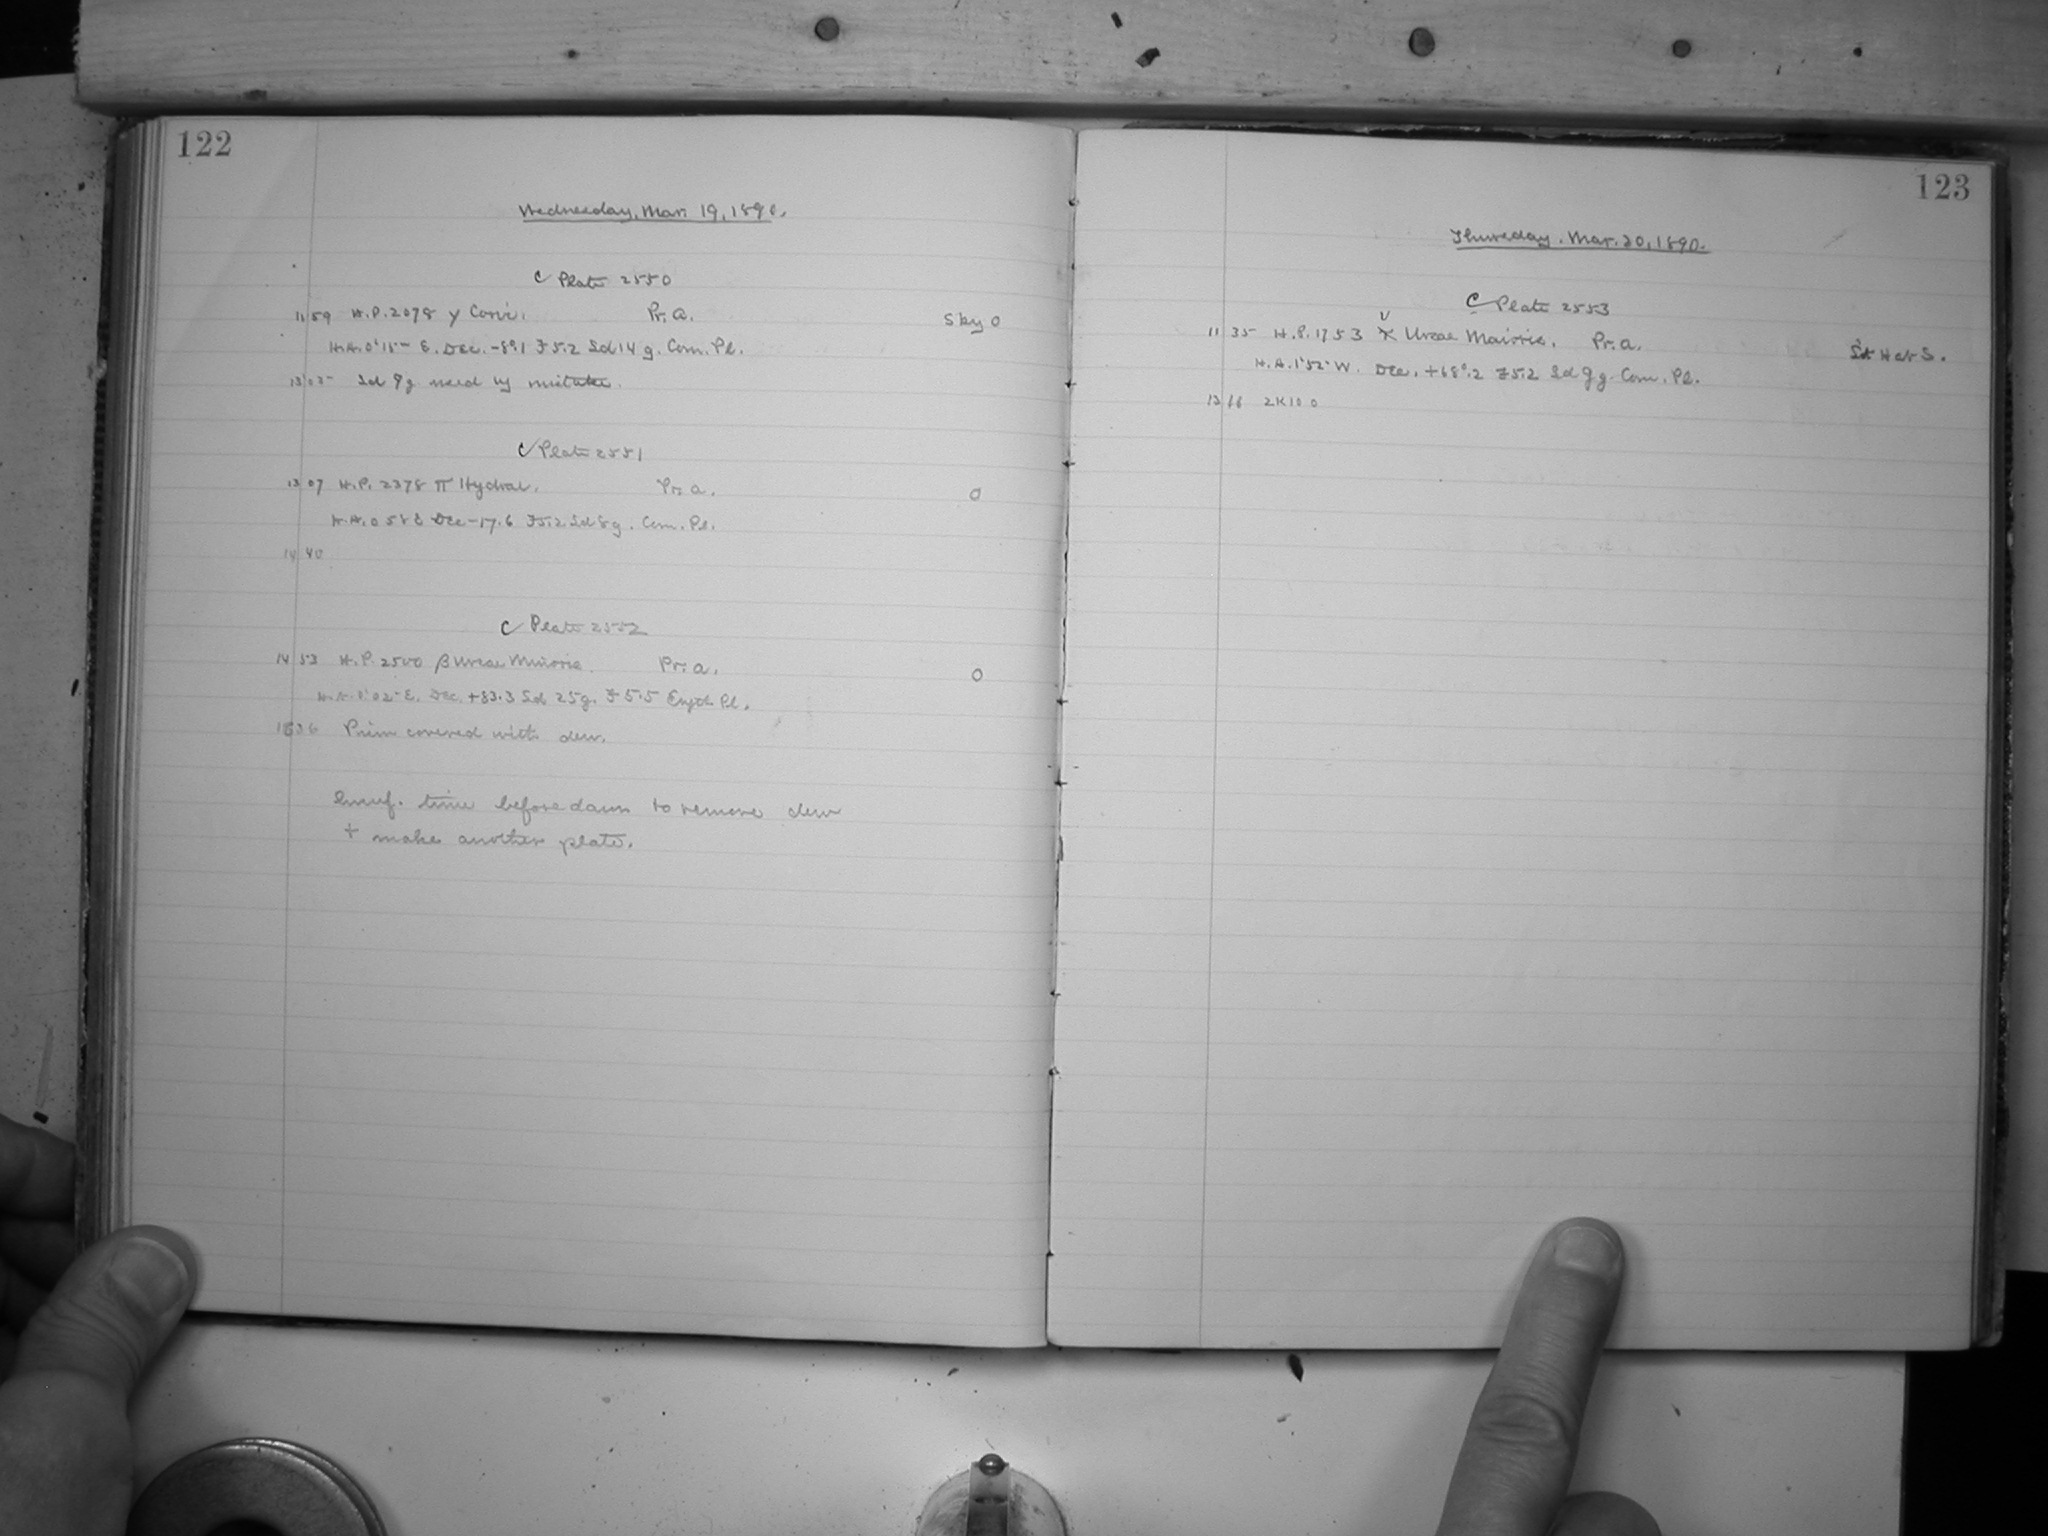 122
Wednesday, Mar. 19, 1890.
C Plate 2550
11 59 H.P. 2078 γ Corvi. Pr. a. Sky 0
H.A. 0h15m E. Dec. -8°.1 F5.2 Sd 14 g. Com. Pl.
13 05 Sd 9g used by mistake.
C Plate 2551
13 07 H.P. 2378 π Hydrae. Pr. a. 0
H.A. 0 58 E Dec -17.6 F5.2 Sd 8 g. Com. Pl.
14 40
C Plate 2552
14 53 H.P. 2500 β Ursae Minoris. Pr. a. 0
H.A. 0h02m E. Dec. +83.3 Sd 25g. F 5.5 Eryth. Pl.
36 Prism covered with dew.
Insuf. time before dawn to remove dew
+ make another plate.
123
Thursday. Mar. 20, 1890.
C Plate 2553
11 35 H.P. 1753 Ursae Majoris. Pr. a. S.
H.A. 1h52m W. Dec. +68°.2 F5.2 Sd 9 g. Com. Pl.
2K100